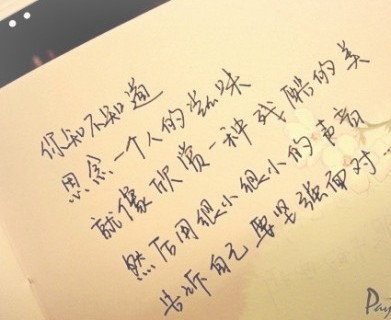 你知不知道
思念一个人的滋味
就像欣赏一种残酷的美
然后用很小很小的声音
告诉自己要坚强面对…
Pay